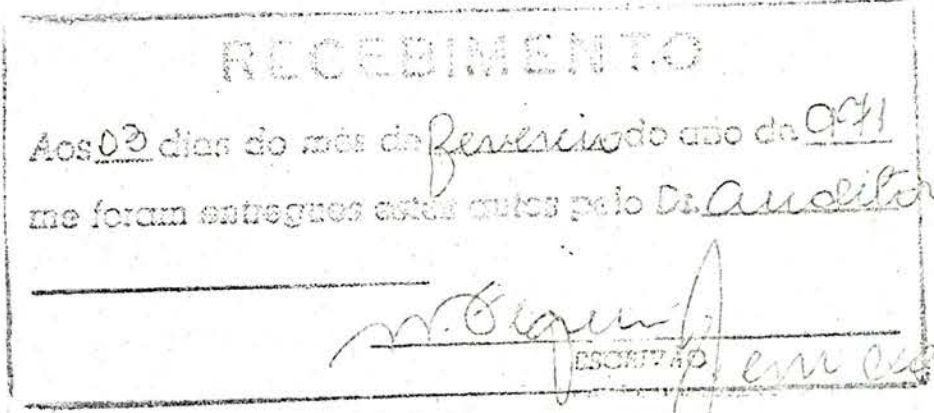 RECEBIMENTO
Aos 03 dias do mês de fevereiro do ano de 971
me foram entregues estes autos pelo Dr. Auditor
ESCRIVÃO em ex